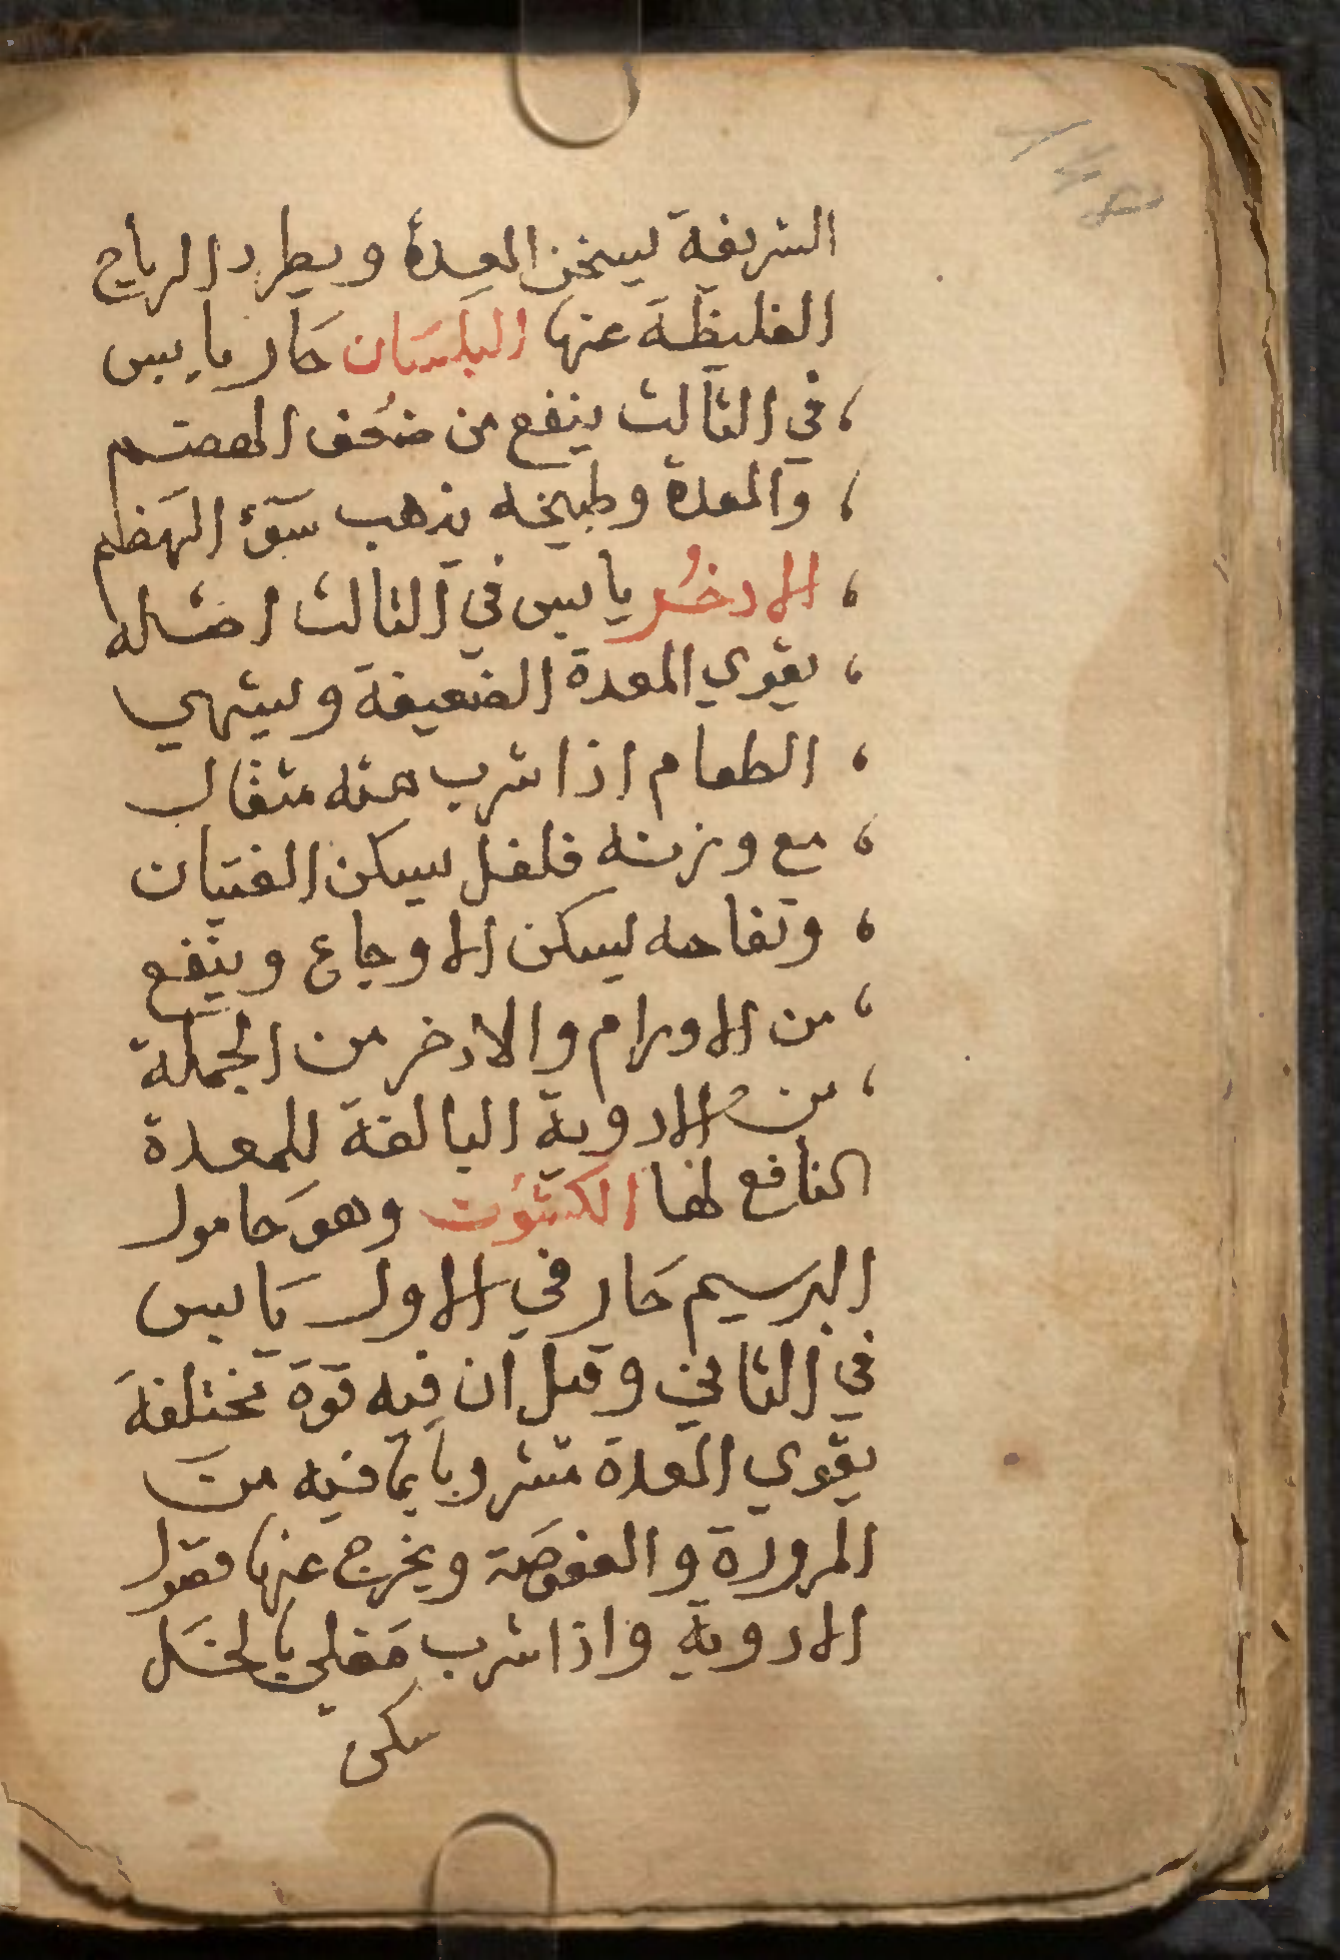 الشريفة يسخن المعدة ويطرد الرياح
الغليظة عنها البلسان حار يابس
في الثالث ينفع من ضعف الهضم
والمعدة وطبيخه يذهب سوء الهضم
الادخر يابس في الثالث اصله
يقوي المعدة الضعيفة ويشهي
الطعام اذا شرب منه مثقال
مع وزنه فلفل يسكن الغثيان
وتفاحه يسكن الاوجاع وينفع
من الاورام والادخر من الجملة
من الادوية البالغة للمعدة
النافع لها الكشوت وهو حامول
البرسيم حار في الاول يابس
في الثاني وقيل ان فيه قوة مختلفة
يقوي المعدة مشروبا بما فيه من
المرورة والعفوصة ويخرج عنها فقول
الادوية واذا شرب مغلي بالخل
سكن